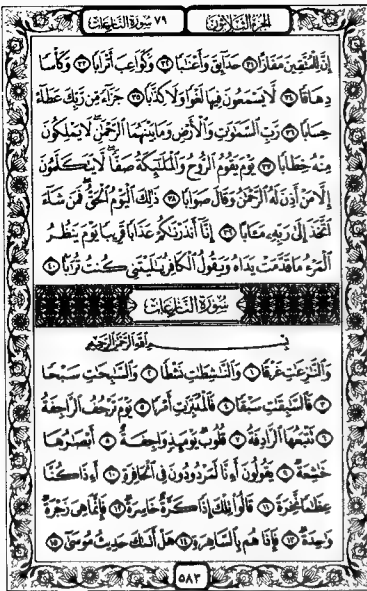 الجزء الثلاثون ٧٩ سورة النازعات
إِنَّ لِلْمُتَّقِينَ مَفَازًا ٣١ حَدَائِقَ وَأَعْنَابًا ٣٢ وَكَوَاعِبَ أَتْرَابًا ٣٣ وَكَأْسًا
دِهَاقًا ٣٤ لَا يَسْمَعُونَ فِيهَا لَغْوًا وَلَا كِذَّابًا ٣٥ جَزَاءً مِنْ رَبِّكَ عَطَاءً
حِسَابًا ٣٦ رَبِّ السَّمَاوَاتِ وَالْأَرْضِ وَمَا بَيْنَهُمَا الرَّحْمَٰنِ لَا يَمْلِكُونَ
مِنْهُ خِطَابًا ٣٧ يَوْمَ يَقُومُ الرُّوحُ وَالْمَلَائِكَةُ صَفًّا لَا يَتَكَلَّمُونَ
إِلَّا مَنْ أَذِنَ لَهُ الرَّحْمَٰنُ وَقَالَ صَوَابًا ٣٨ ذَٰلِكَ الْيَوْمُ الْحَقُّ فَمَنْ شَاءَ
اتَّخَذَ إِلَىٰ رَبِّهِ مَآبًا ٣٩ إِنَّا أَنْذَرْنَاكُمْ عَذَابًا قَرِيبًا يَوْمَ يَنْظُرُ
الْمَرْءُ مَا قَدَّمَتْ يَدَاهُ وَيَقُولُ الْكَافِرُ يَا لَيْتَنِي كُنْتُ تُرَابًا ٤٠
سُورَةُ النَّازِعَاتِ
بِسْمِ اللَّهِ الرَّحْمَٰنِ الرَّحِيمِ
وَالنَّازِعَاتِ غَرْقًا ١ وَالنَّاشِطَاتِ نَشْطًا ٢ وَالسَّابِحَاتِ سَبْحًا
٣ فَالسَّابِقَاتِ سَبْقًا ٤ فَالْمُدَبِّرَاتِ أَمْرًا ٥ يَوْمَ تَرْجُفُ الرَّاجِفَةُ
٦ تَتْبَعُهَا الرَّادِفَةُ ٧ قُلُوبٌ يَوْمَئِذٍ وَاجِفَةٌ ٨ أَبْصَارُهَا
خَاشِعَةٌ ٩ يَقُولُونَ أَءِنَّا لَمَرْدُودُونَ فِي الْحَافِرَةِ ١٠ أَءِذَا كُنَّا
عِظَامًا نَخِرَةً ١١ قَالُوا تِلْكَ إِذًا كَرَّةٌ خَاسِرَةٌ ١٢ فَإِنَّمَا هِيَ زَجْرَةٌ
وَاحِدَةٌ ١٣ فَإِذَا هُمْ بِالسَّاهِرَةِ ١٤ هَلْ أَتَاكَ حَدِيثُ مُوسَىٰ ١٥
٥٨٣